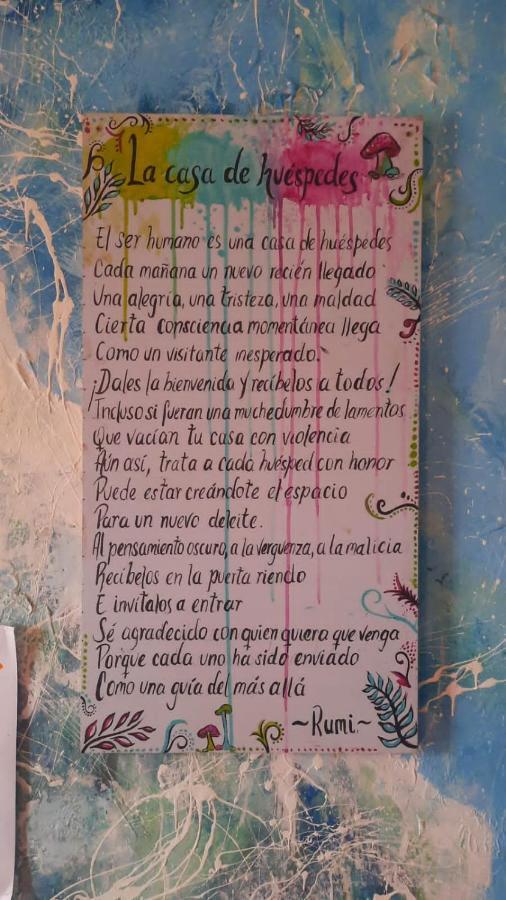 La casa de huéspedes
El ser humano es una casa de huéspedes
Cada mañana un nuevo recién llegado
Una alegria, una tristeza, una maldad
Cierta consciencia momentánea llega
Como un visitante inesperado.
¡Dales la bienvenida y recíbelos a todos!
Incluso si fueran una muchedumbre de lamentos
Que vacían tu casa con violencia
Aún así, trata a cada huésped con honor
Puede estar creándote el espacio
Para un nuevo deleite.
Al pensamiento oscuro, a la verguenza, a la malicia
Recíbelos en la puerta riendo
E invítalos a entrar
Sé agradecido con quien quiera que venga
Porque cada uno ha sido enviado
Como una guía del más allá
~Rumi.~